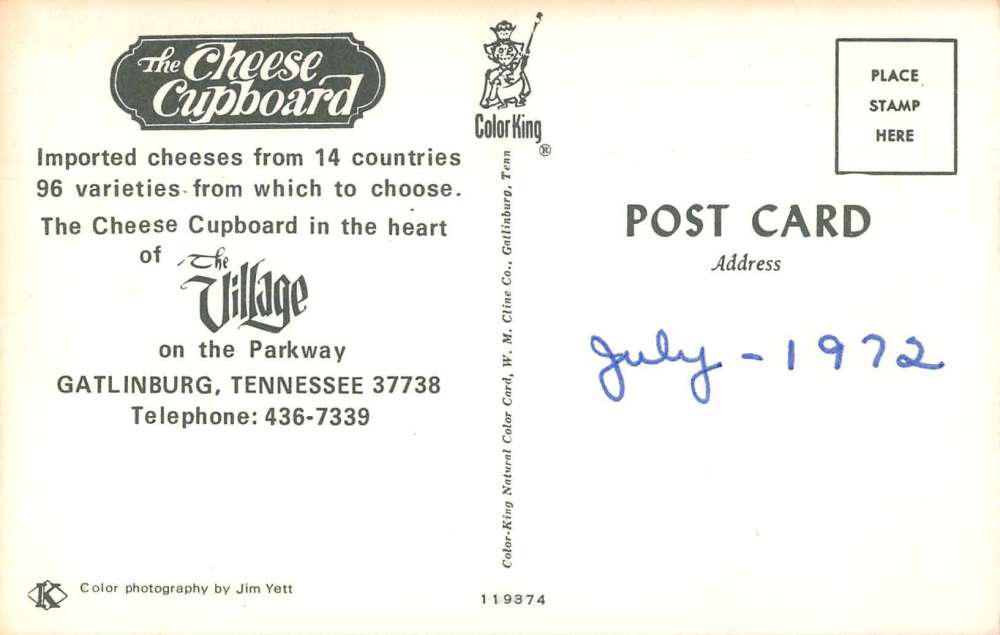 The Cheese
Cupboard
Imported cheeses from 14 countries
96 varieties from which to choose.
The Cheese Cupboard in the heart
of The Village
on the Parkway
GATLINBURG, TENNESSEE 37738
Telephone: 436-7339
K Color photography by Jim Yett
ColorKing ®
Color-King Natural Color Card, W. M. Cline Co., Gatlinburg, Tenn
119374
PLACE
STAMP
HERE
POST CARD
Address
July - 1972